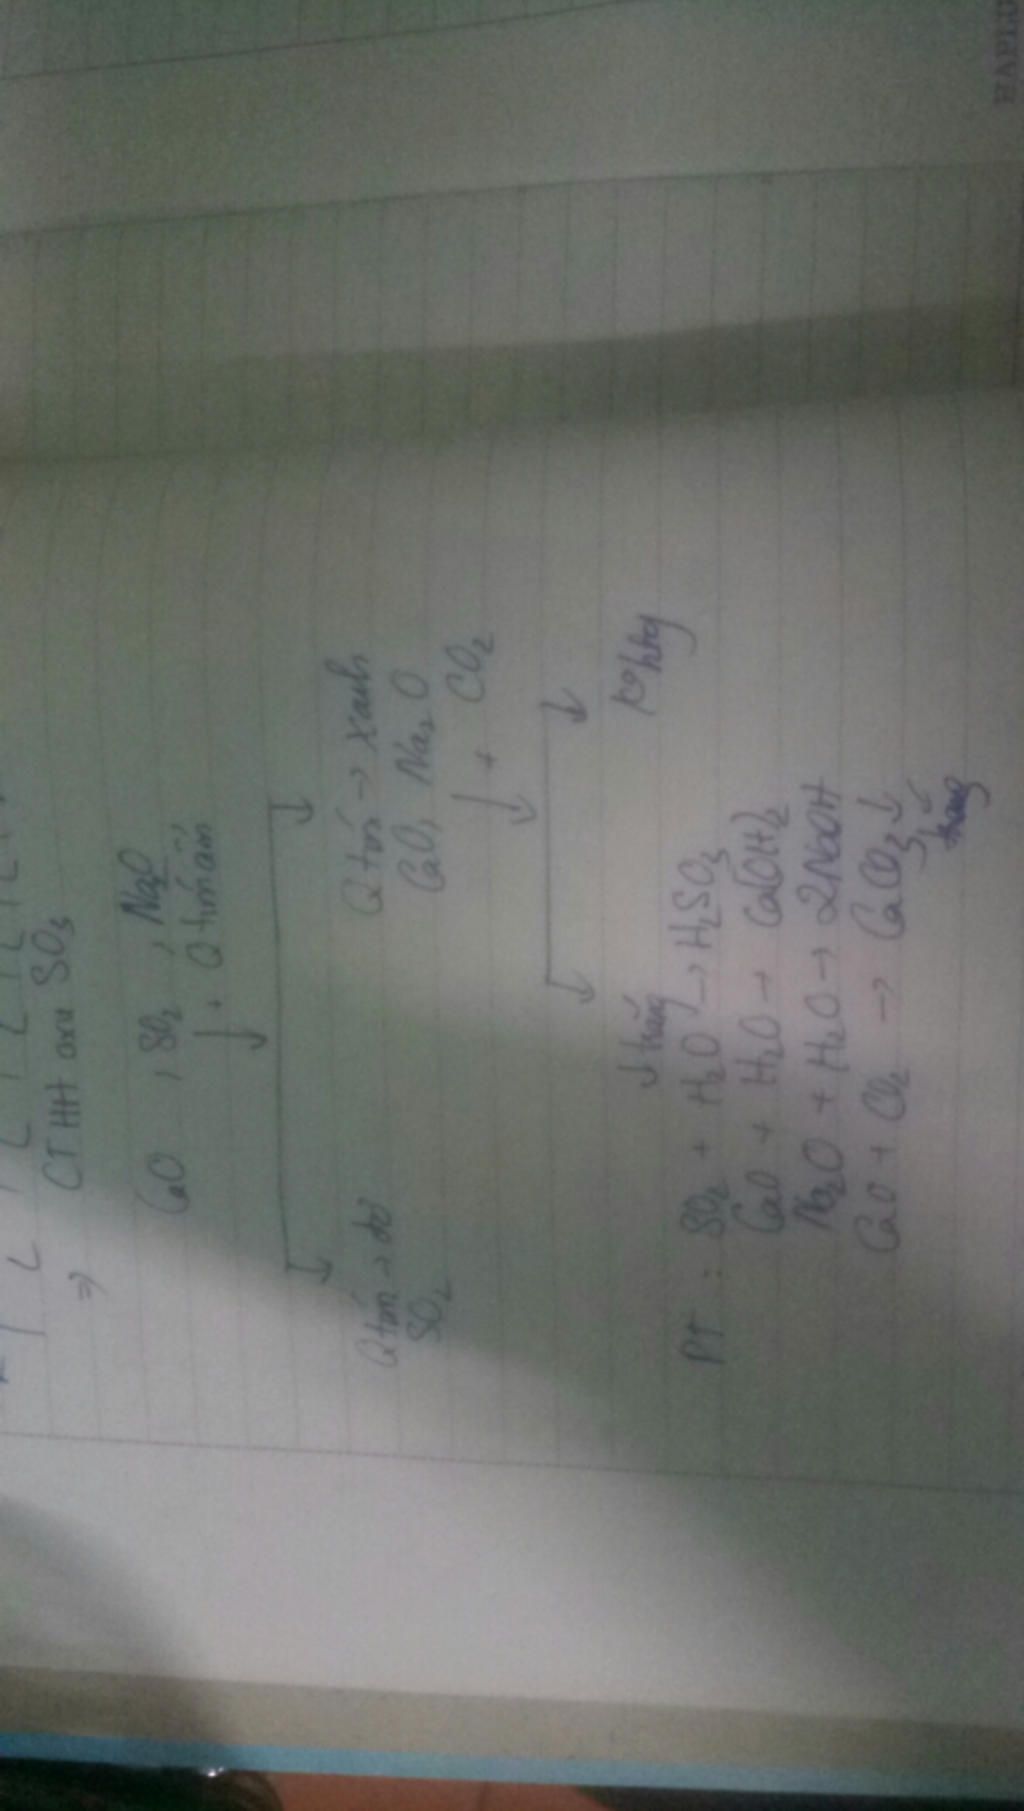 ⇒ CTHH oxu SO3
CaO , SO2 , Na2O
↓ + Q tím ẩm
Q tím → đỏ Q tím → xanh
SO2 CaO, Na2O
↓ + CO2
↓ trắng K° htg
PT : SO2 + H2O → H2SO3
CaO + H2O → Ca(OH)2
Na2O + H2O → 2NaOH
CaO + CO2 → CaCO3 ↓
trắng